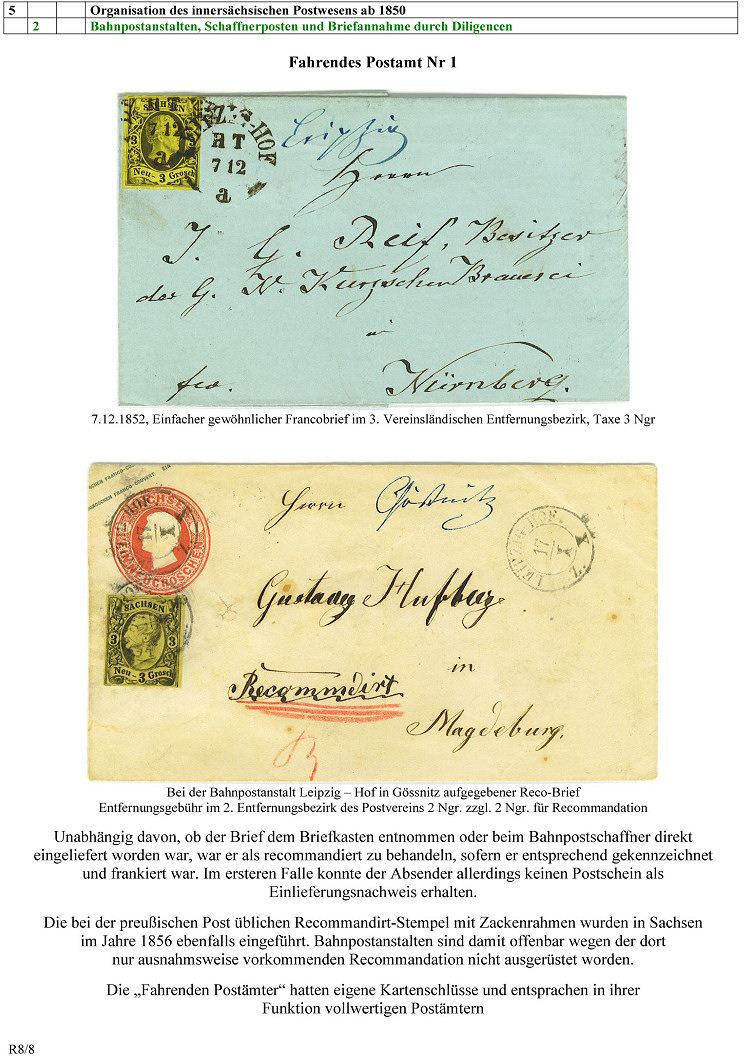 5 Organisation des innersächsischen Postwesens ab 1850
2 Bahnpostanstalten, Schaffnerposten und Briefannahme durch Diligencen
Fahrendes Postamt Nr 1
SACHSEN
3
Neu - 3 Grosch
7 12
a
LEIPZ: HOF
7 12
a
Leipzig
Herrn
J. G. Reif, Besitzer
der G. N. Kurz'schen Brauerei
in
fco. Nürnberg.
7.12.1852, Einfacher gewöhnlicher Francobrief im 3. Vereinsländischen Entfernungsbezirk, Taxe 3 Ngr
EIN NEUGROSCHEN
17
I
SACHSEN
3 3
Neu - 3 Grosch
Herrn Gössnitz
LEIPZIG-HOF. I
17
I
Z.
Gustav
in
Recommdirt
Magdeburg.
Bei der Bahnpostanstalt Leipzig – Hof in Gössnitz aufgegebener Reco-Brief
Entfernungsgebühr im 2. Entfernungsbezirk des Postvereins 2 Ngr. zzgl. 2 Ngr. für Recommandation
Unabhängig davon, ob der Brief dem Briefkasten entnommen oder beim Bahnpostschaffner direkt
eingeliefert worden war, war er als recommandiert zu behandeln, sofern er entsprechend gekennzeichnet
und frankiert war. Im ersteren Falle konnte der Absender allerdings keinen Postschein als
Einlieferungsnachweis erhalten.
Die bei der preußischen Post üblichen Recommandirt-Stempel mit Zackenrahmen wurden in Sachsen
im Jahre 1856 ebenfalls eingeführt. Bahnpostanstalten sind damit offenbar wegen der dort
nur ausnahmsweise vorkommenden Recommandation nicht ausgerüstet worden.
Die „Fahrenden Postämter“ hatten eigene Kartenschlüsse und entsprachen in ihrer
Funktion vollwertigen Postämtern
R8/8